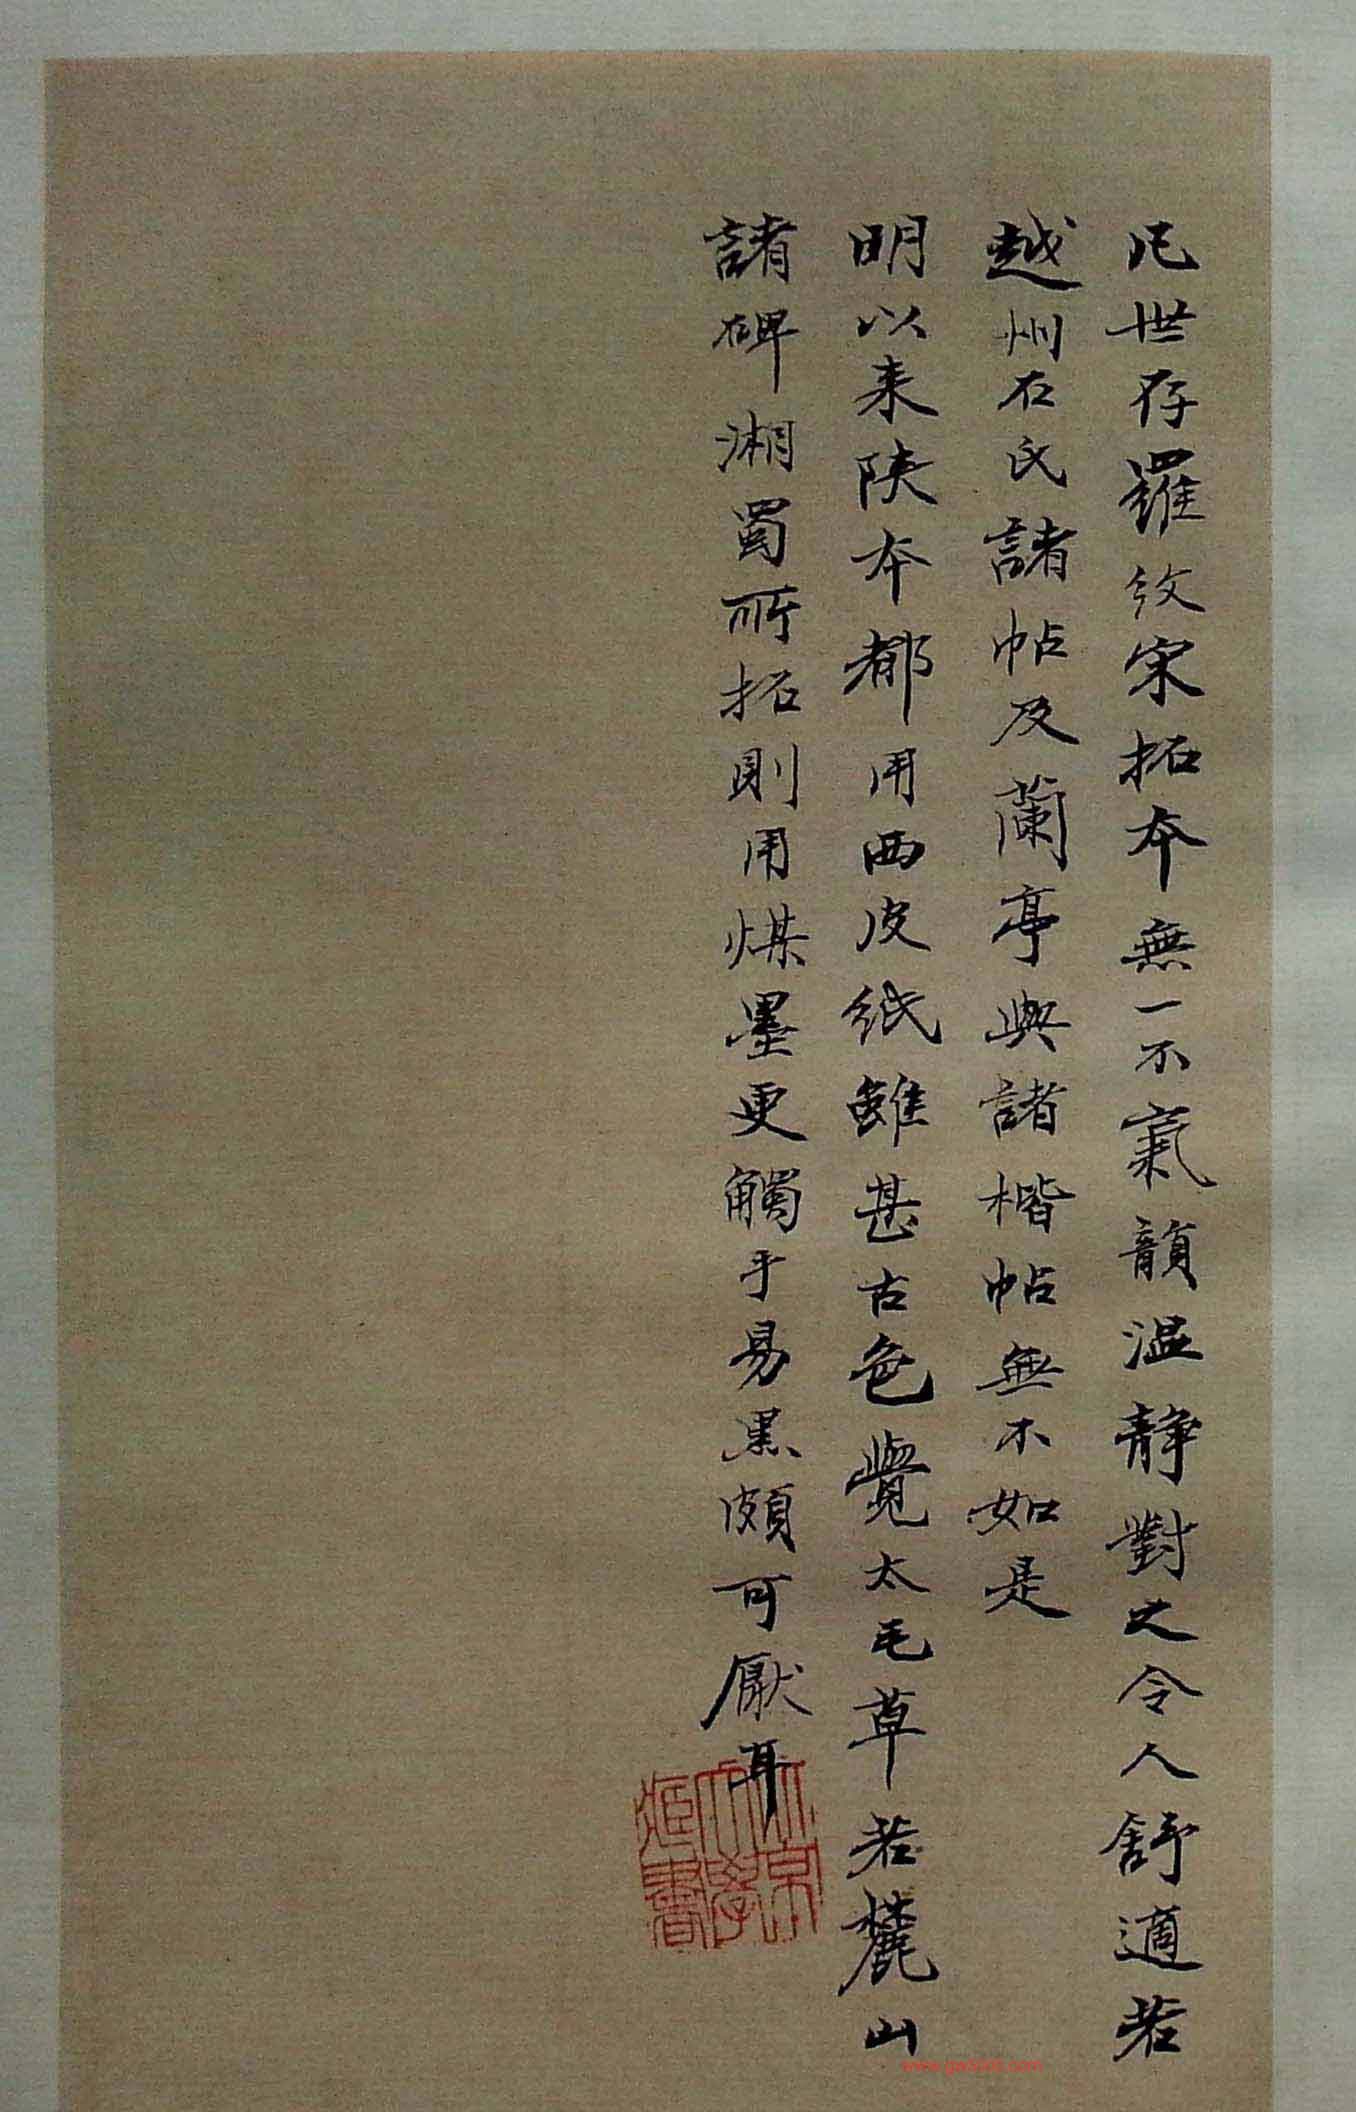 凡世存羅紋宋拓本無一不氣韻温静對之令人舒適若
越州石氏諸帖及蘭亭與諸楷帖無不如是
明以来陕本都用西皮紙雖甚古色覺太毛草若麓山
諸碑湘蜀所拓則用煤墨更觸手易黒頗可厭耳
北京大學藏書